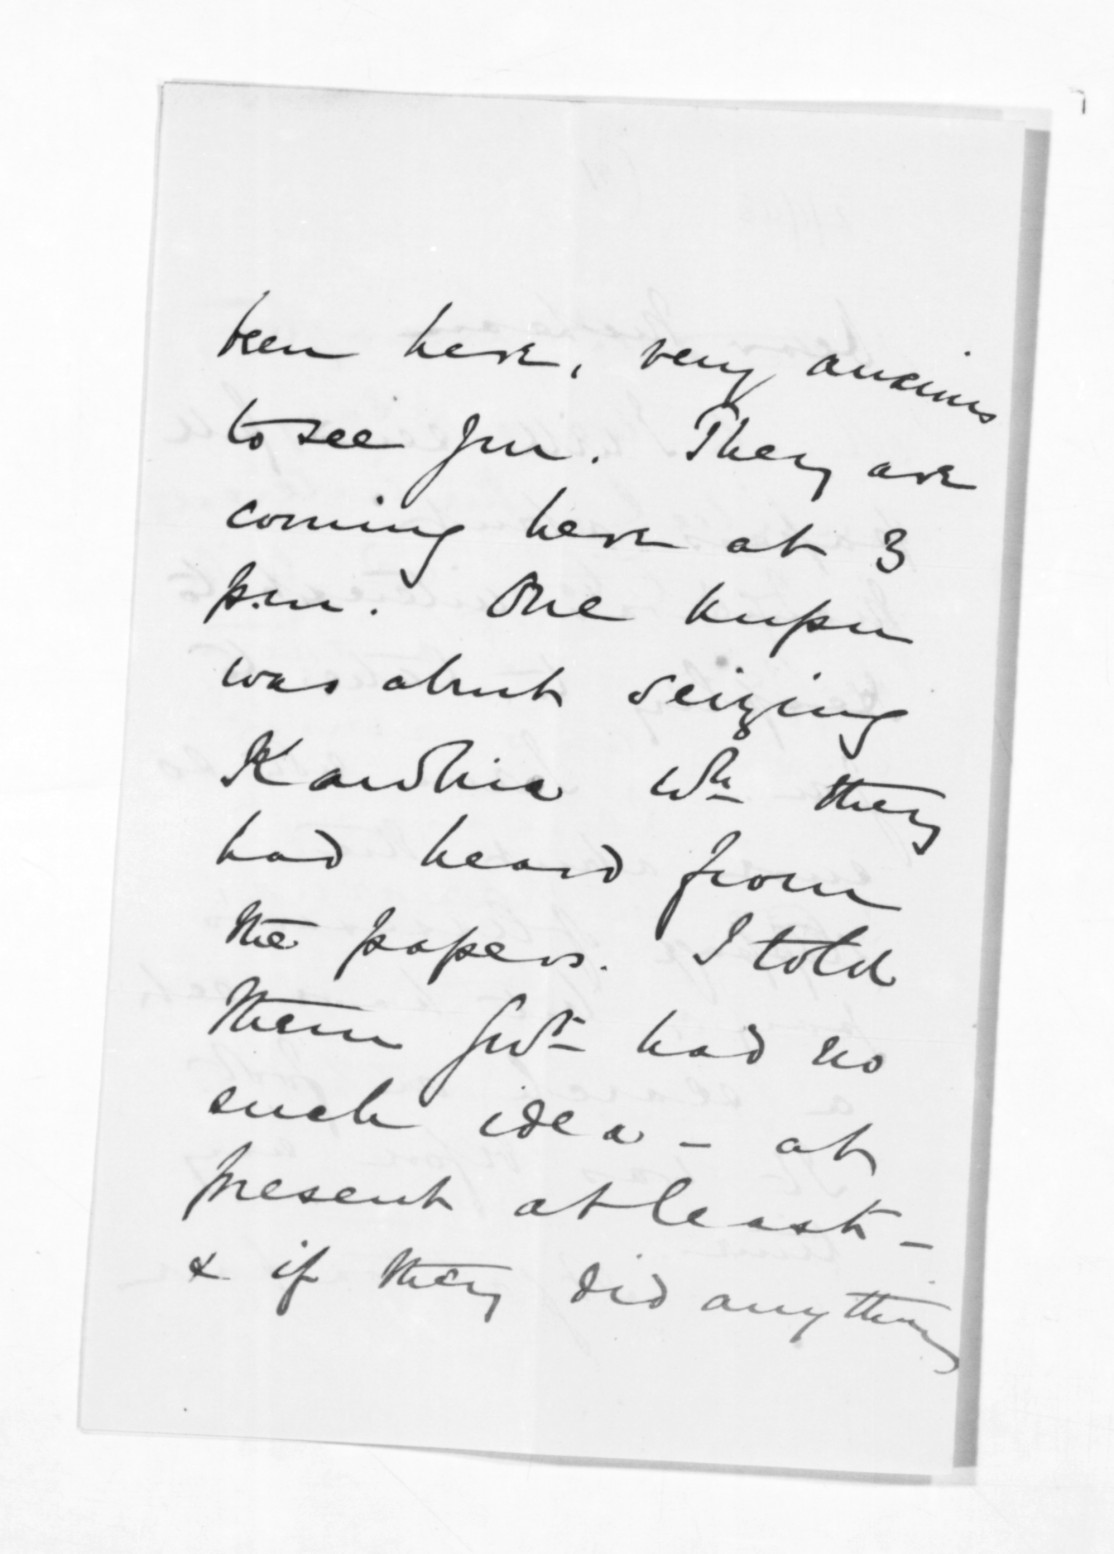 been here, very anxious
to see you. They are
coming here at 3
p.m. One kupu
was about seizing
Kawhia wh. they
had heard from
the papers. I told
them Govt. had no
such idea - at
present at least -
& if they did anything